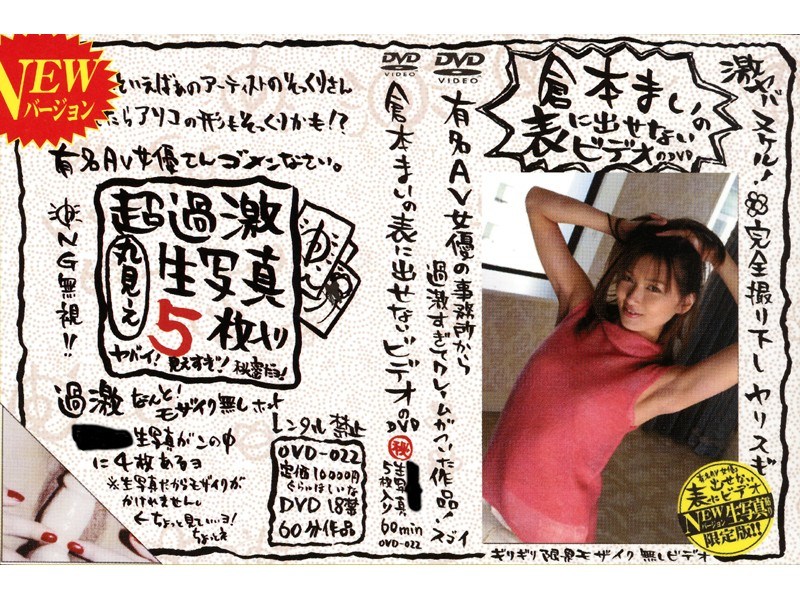 NEW
バージョン
といえばあのアーティストのそっくりさん
たらアソコの形もそっくりかも!?
有名AV女優さんゴメンなさい。
NG無視!!
超過激
丸見え
生写真
5枚入り
ヤバイ!見えすぎ!秘密だョ!
過激なんと!モザイク無しホント
生写真がこの中
に4枚あるヨ
※生写真だからモザイクが
かけれません。
←ちょっと見ていいヨ!
ちょっとネ
レンタル禁止
OVD-022
定価10000円
ぐらいほしいな
DVD 18禁
60分作品
DVD
VIDEO
倉本まいの表に出せないビデオのDVD
㊙
生写真
5枚入り
60min
OVD-022
DVD
VIDEO
有名AV女優の事務所から
過激すぎてクレームがついた作品!スゴイ
倉本まいの
表に出せない
ビデオのDVD
激ヤバスケル!完全撮り下しヤリスギ
表に出せない
ビデオ
NEW
バージョン
生写真
限定版!!
ギリギリ限界モザイク無しビデオ